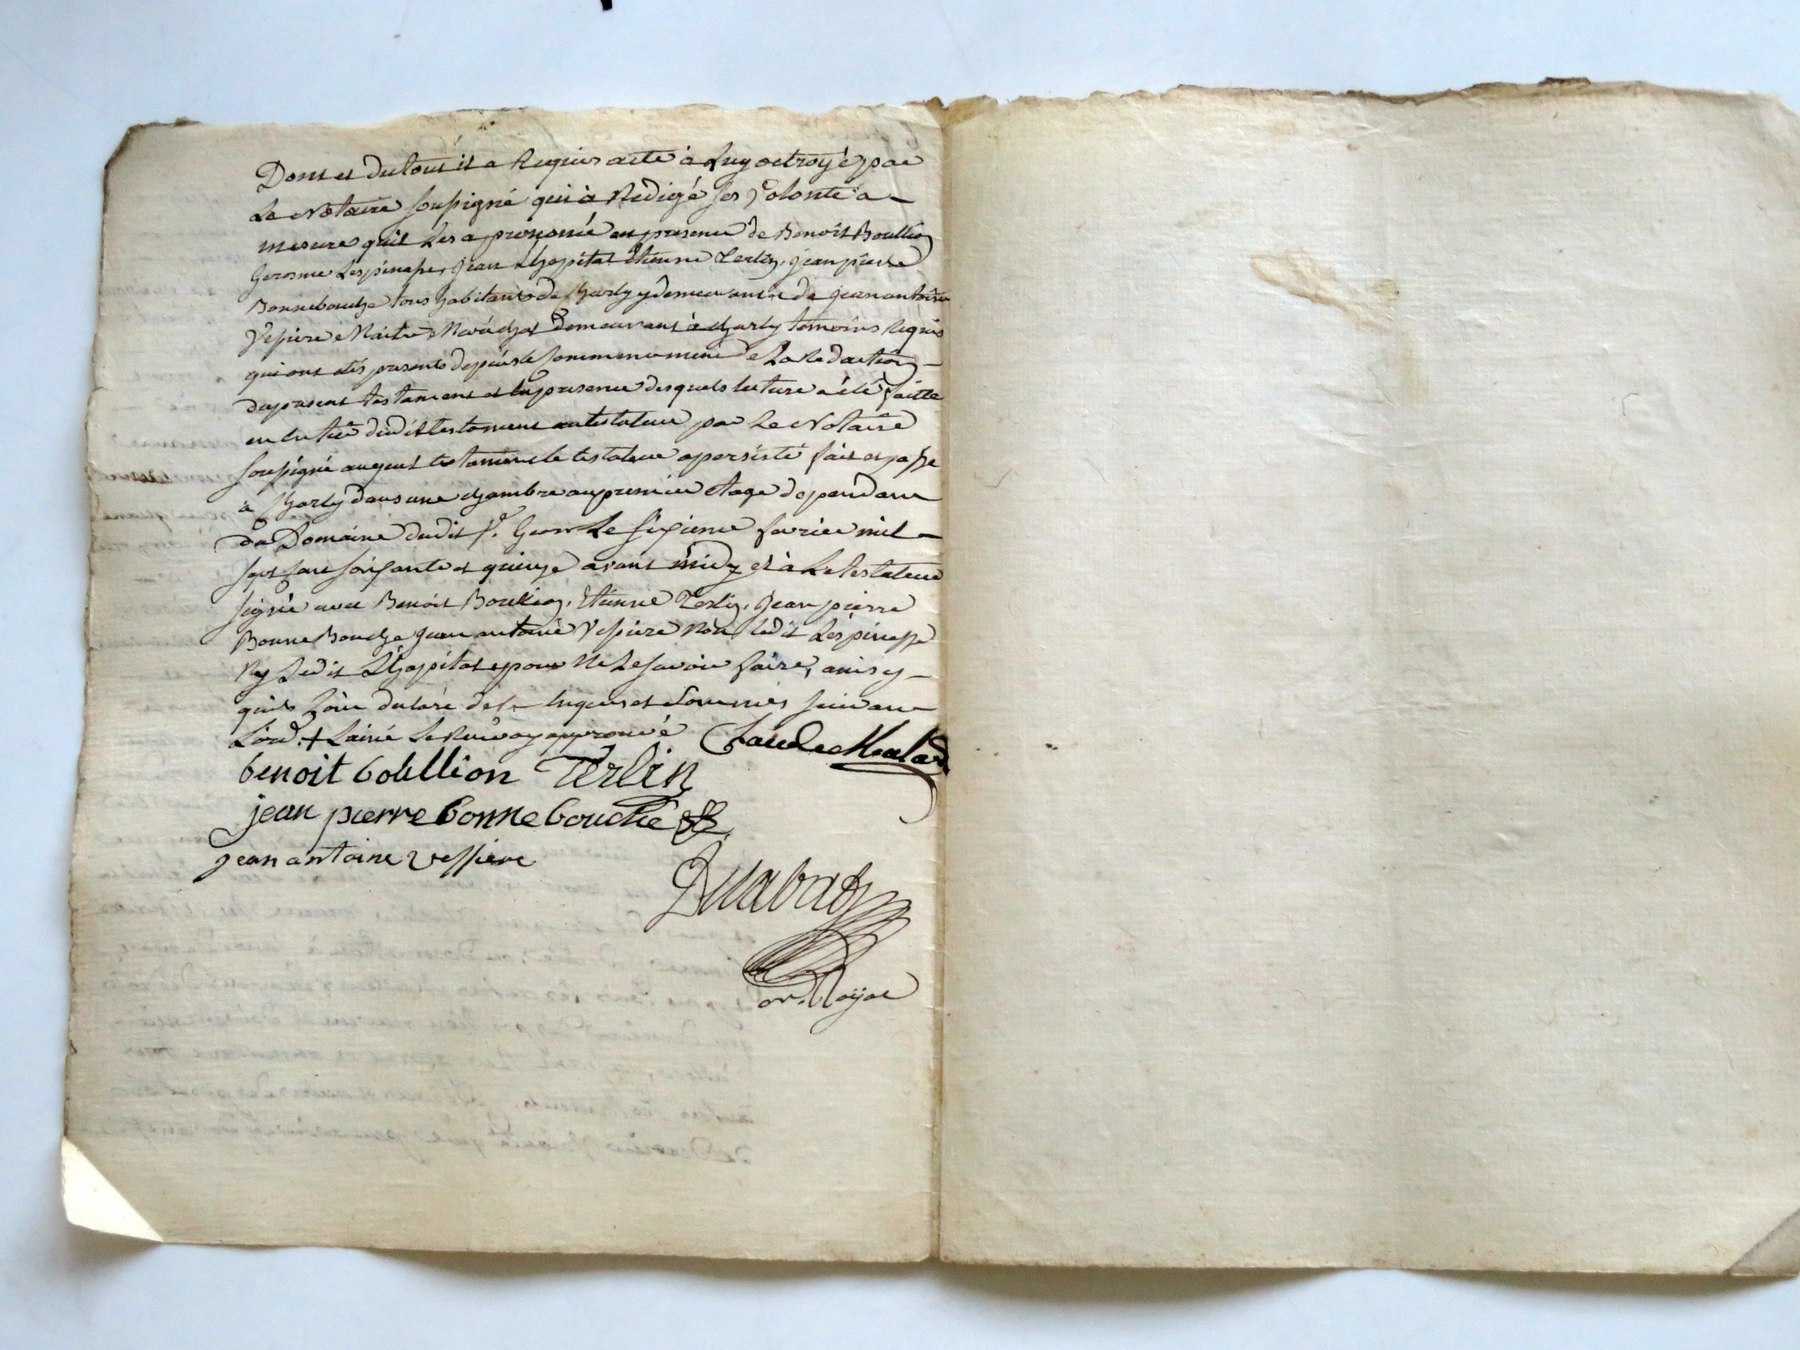 Dont et du tout il a Requis acte à Luy octroyé par
Le Notaire soussigné qui à Redigé ses volonté a
mesure quil Les a prononcé en presence de Benoit Boullion
Gerosme Lespinasse, jean Lhopital Etienne Terlin, jean pierre
Bonnebouche tous habitants de Charly y demeurants & de jean antoine
Vessiere Maitre demeurant à charly temoins Requis
qui ont étés presents depuis le Commencement de La Redaction
du present testament et en presence desquels lecture a été faitte
en entier dudit testament au testateur par Le Notaire
soussigné auquel testament le testateur a persisté fait et passé
à Charly dans une chambre au premier Etage dependant
du Domaine dudit sr. Le sixieme fevrier mil
sept cent soixante et quinze avant midy et à Le testateur
signé avec Benoit Boullion, Etienne Terlin, Jean pierre
Bonne Bouche jean antoine Vessiere Non ledit Lespinasse
Ny Ledit Lhopital pour Ne Le savoir faire, an
quis suivant
Lord. + Lainé Le Renvoy approuvé Claude
benoit boullion Terlin
jean pierre bonne bouche
jean antoine vessiere
Royal